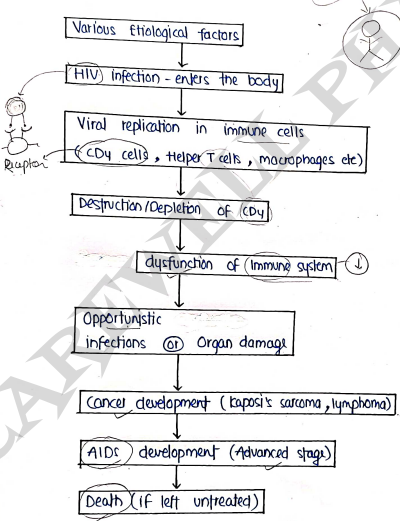 Various Etiological factors
HIV infection - enters the body
Viral replication in immune cells
(CD4 cells, Helper T cells, macrophages etc)
Receptor
Destruction/Depletion of CD4
dysfunction of Immune system ↓
Opportunistic
infections or Organ damage
Cancer development (Kaposi's sarcoma, lymphoma)
AIDS development (Advanced stage)
Death (if left untreated)
CAREWELL PH